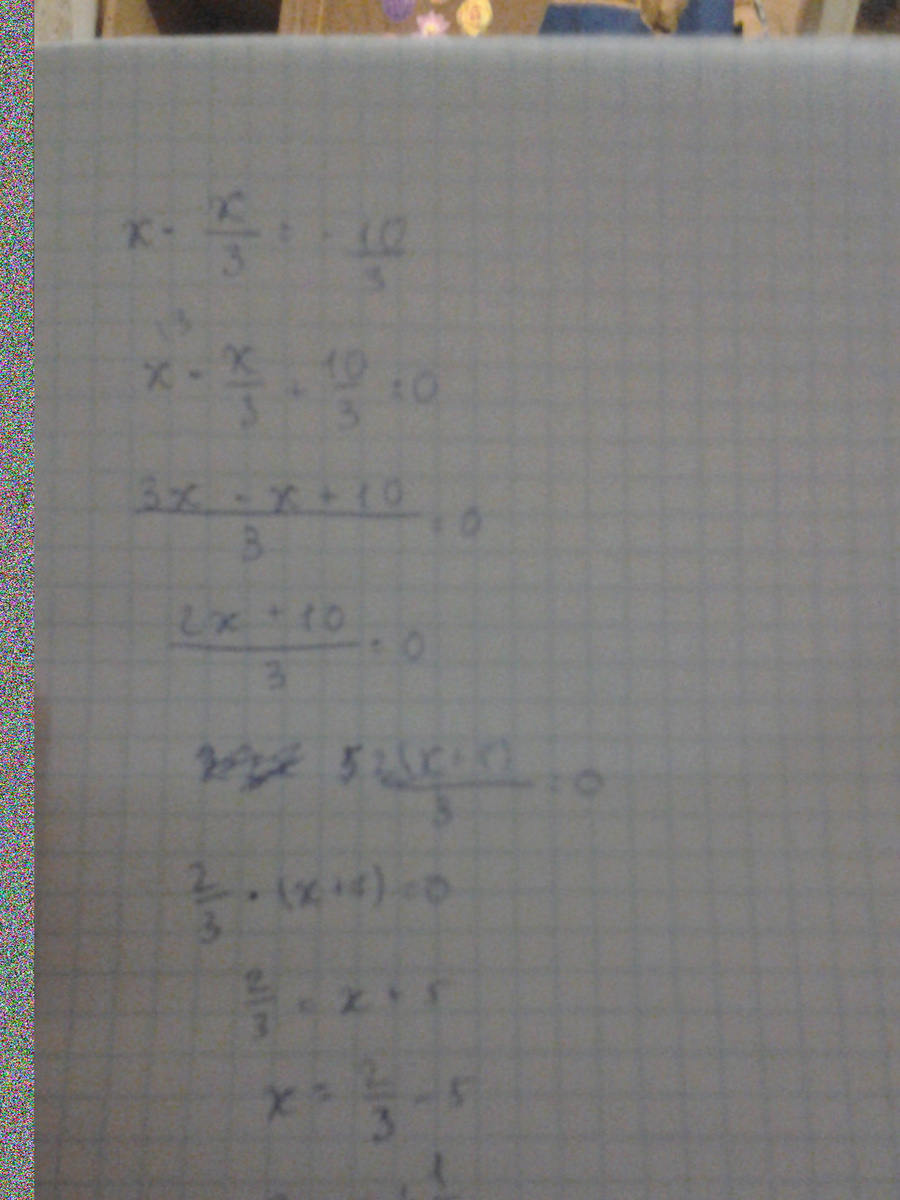 x - x/3 = - 10/3
x - x/3 + 10/3 = 0
(3x - x + 10)/3 = 0
(2x + 10)/3 = 0
2(x+5)/3 = 0
2/3 · (x+5) = 0
2/3 = x + 5
x = 2/3 - 5